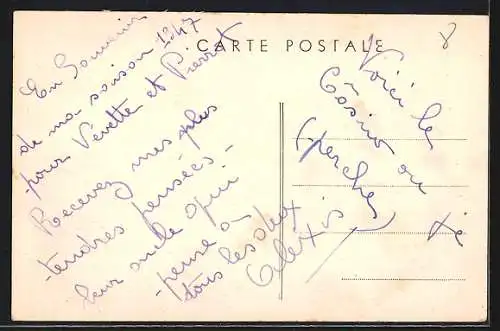 CARTE POSTALE
En Souvenir
de ma saison 1947
pour Vevette et Pierrot
Recevez mes plus
tendres pensées -
leur oncle qui
pense à
tous les deux
Alexis
Voici le
Casino ou
(perche)
je
8